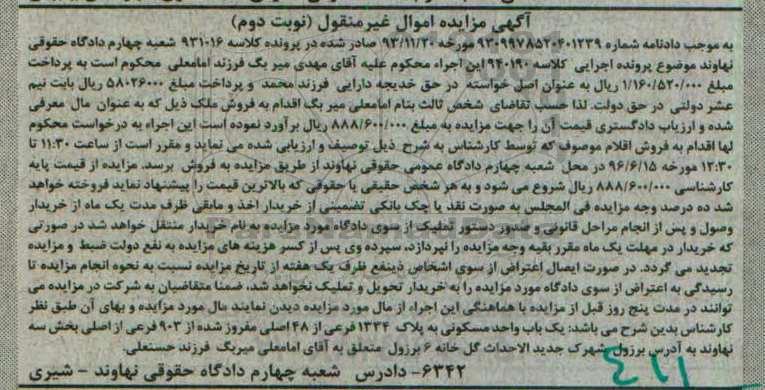 آگهی مزایده اموال غیرمنقول (نوبت دوم)
به موجب دادنامه شماره ۹۳۰۹۹۷۸۵۲۰۴۰۱۲۳۹ مورخه ۹۳/۱۱/۲۰ صادر شده در پرونده کلاسه ۱۶-۹۳۱ شعبه چهارم دادگاه حقوقی
نهاوند موضوع پرونده اجرایی کلاسه ۹۴۰۱۹۰ این اجراء محکوم علیه آقای مهدی میر بگ فرزند امامعلی محکوم است به پرداخت
مبلغ ۱/۱۶۰/۵۲۰/۰۰۰ ریال به عنوان اصل خواسته در حق خدیجه دارایی فرزند محمد و پرداخت مبلغ ۵۸۰۲۶۰۰۰ ریال بابت نیم
عشر دولتی در حق دولت. لذا حسب تقاضای شخص ثالث بنام امامعلی میر بگ اقدام به فروش ملک ذیل که به عنوان مال معرفی
شده و ارزیاب دادگستری قیمت آن را جهت مزایده به مبلغ ۸۸۸/۶۰۰/۰۰۰ ریال برآورد نموده است این اجراء به درخواست محکوم
لها اقدام به فروش اقلام موصوف که توسط کارشناس به شرح ذیل توصیف و ارزیابی شده می نماید و مقرر است از ساعت ۱۱:۳۰ تا
۱۲:۳۰ مورخه ۹۶/۶/۱۵ در محل شعبه چهارم دادگاه عمومی حقوقی نهاوند از طریق مزایده به فروش برسد. مزایده از قیمت پایه
کارشناسی ۸۸۸/۶۰۰/۰۰۰ ریال شروع می شود و به هر شخص حقیقی یا حقوقی که بالاترین قیمت را پیشنهاد نماید فروخته خواهد
شد ده درصد وجه مزایده فی المجلس به صورت نقد یا چک بانکی تضمینی از خریدار اخذ و مابقی ظرف مدت یک ماه از خریدار
وصول و پس از انجام مراحل قانونی و صدور دستور تملیک از سوی دادگاه مورد مزایده به نام خریدار منتقل خواهد شد در صورتی
که خریدار در مهلت یک ماه مقرر بقیه وجه مزایده را نپردازد، سپرده وی پس از کسر هزینه های مزایده به نفع دولت ضبط و مزایده
تجدید می گردد. در صورت ایصال اعتراض از سوی اشخاص ذینفع ظرف یک هفته از تاریخ مزایده نسبت به نحوه انجام مزایده تا
رسیدگی به اعتراض از سوی دادگاه مورد مزایده را به خریدار تحویل و تملیک نخواهد شد، ضمنا متقاضیان به شرکت در مزایده می
توانند در مدت پنج روز قبل از مزایده با هماهنگی این اجراء از مال مورد مزایده دیدن نمایند مال مورد مزایده و بهای آن طبق نظر
کارشناس بدین شرح می باشد: یک باب واحد مسکونی به پلاک ۱۳۳۴ فرعی از ۴۸ اصلی مفروز شده از ۹۰۳ فرعی از اصلی بخش سه
نهاوند به آدرس برزول شهرک جدید الاحداث گل خانه ۶ برزول متعلق به آقای امامعلی میربگ فرزند حسنعلی.
۶۳۴۲- دادرس شعبه چهارم دادگاه حقوقی نهاوند - شیری